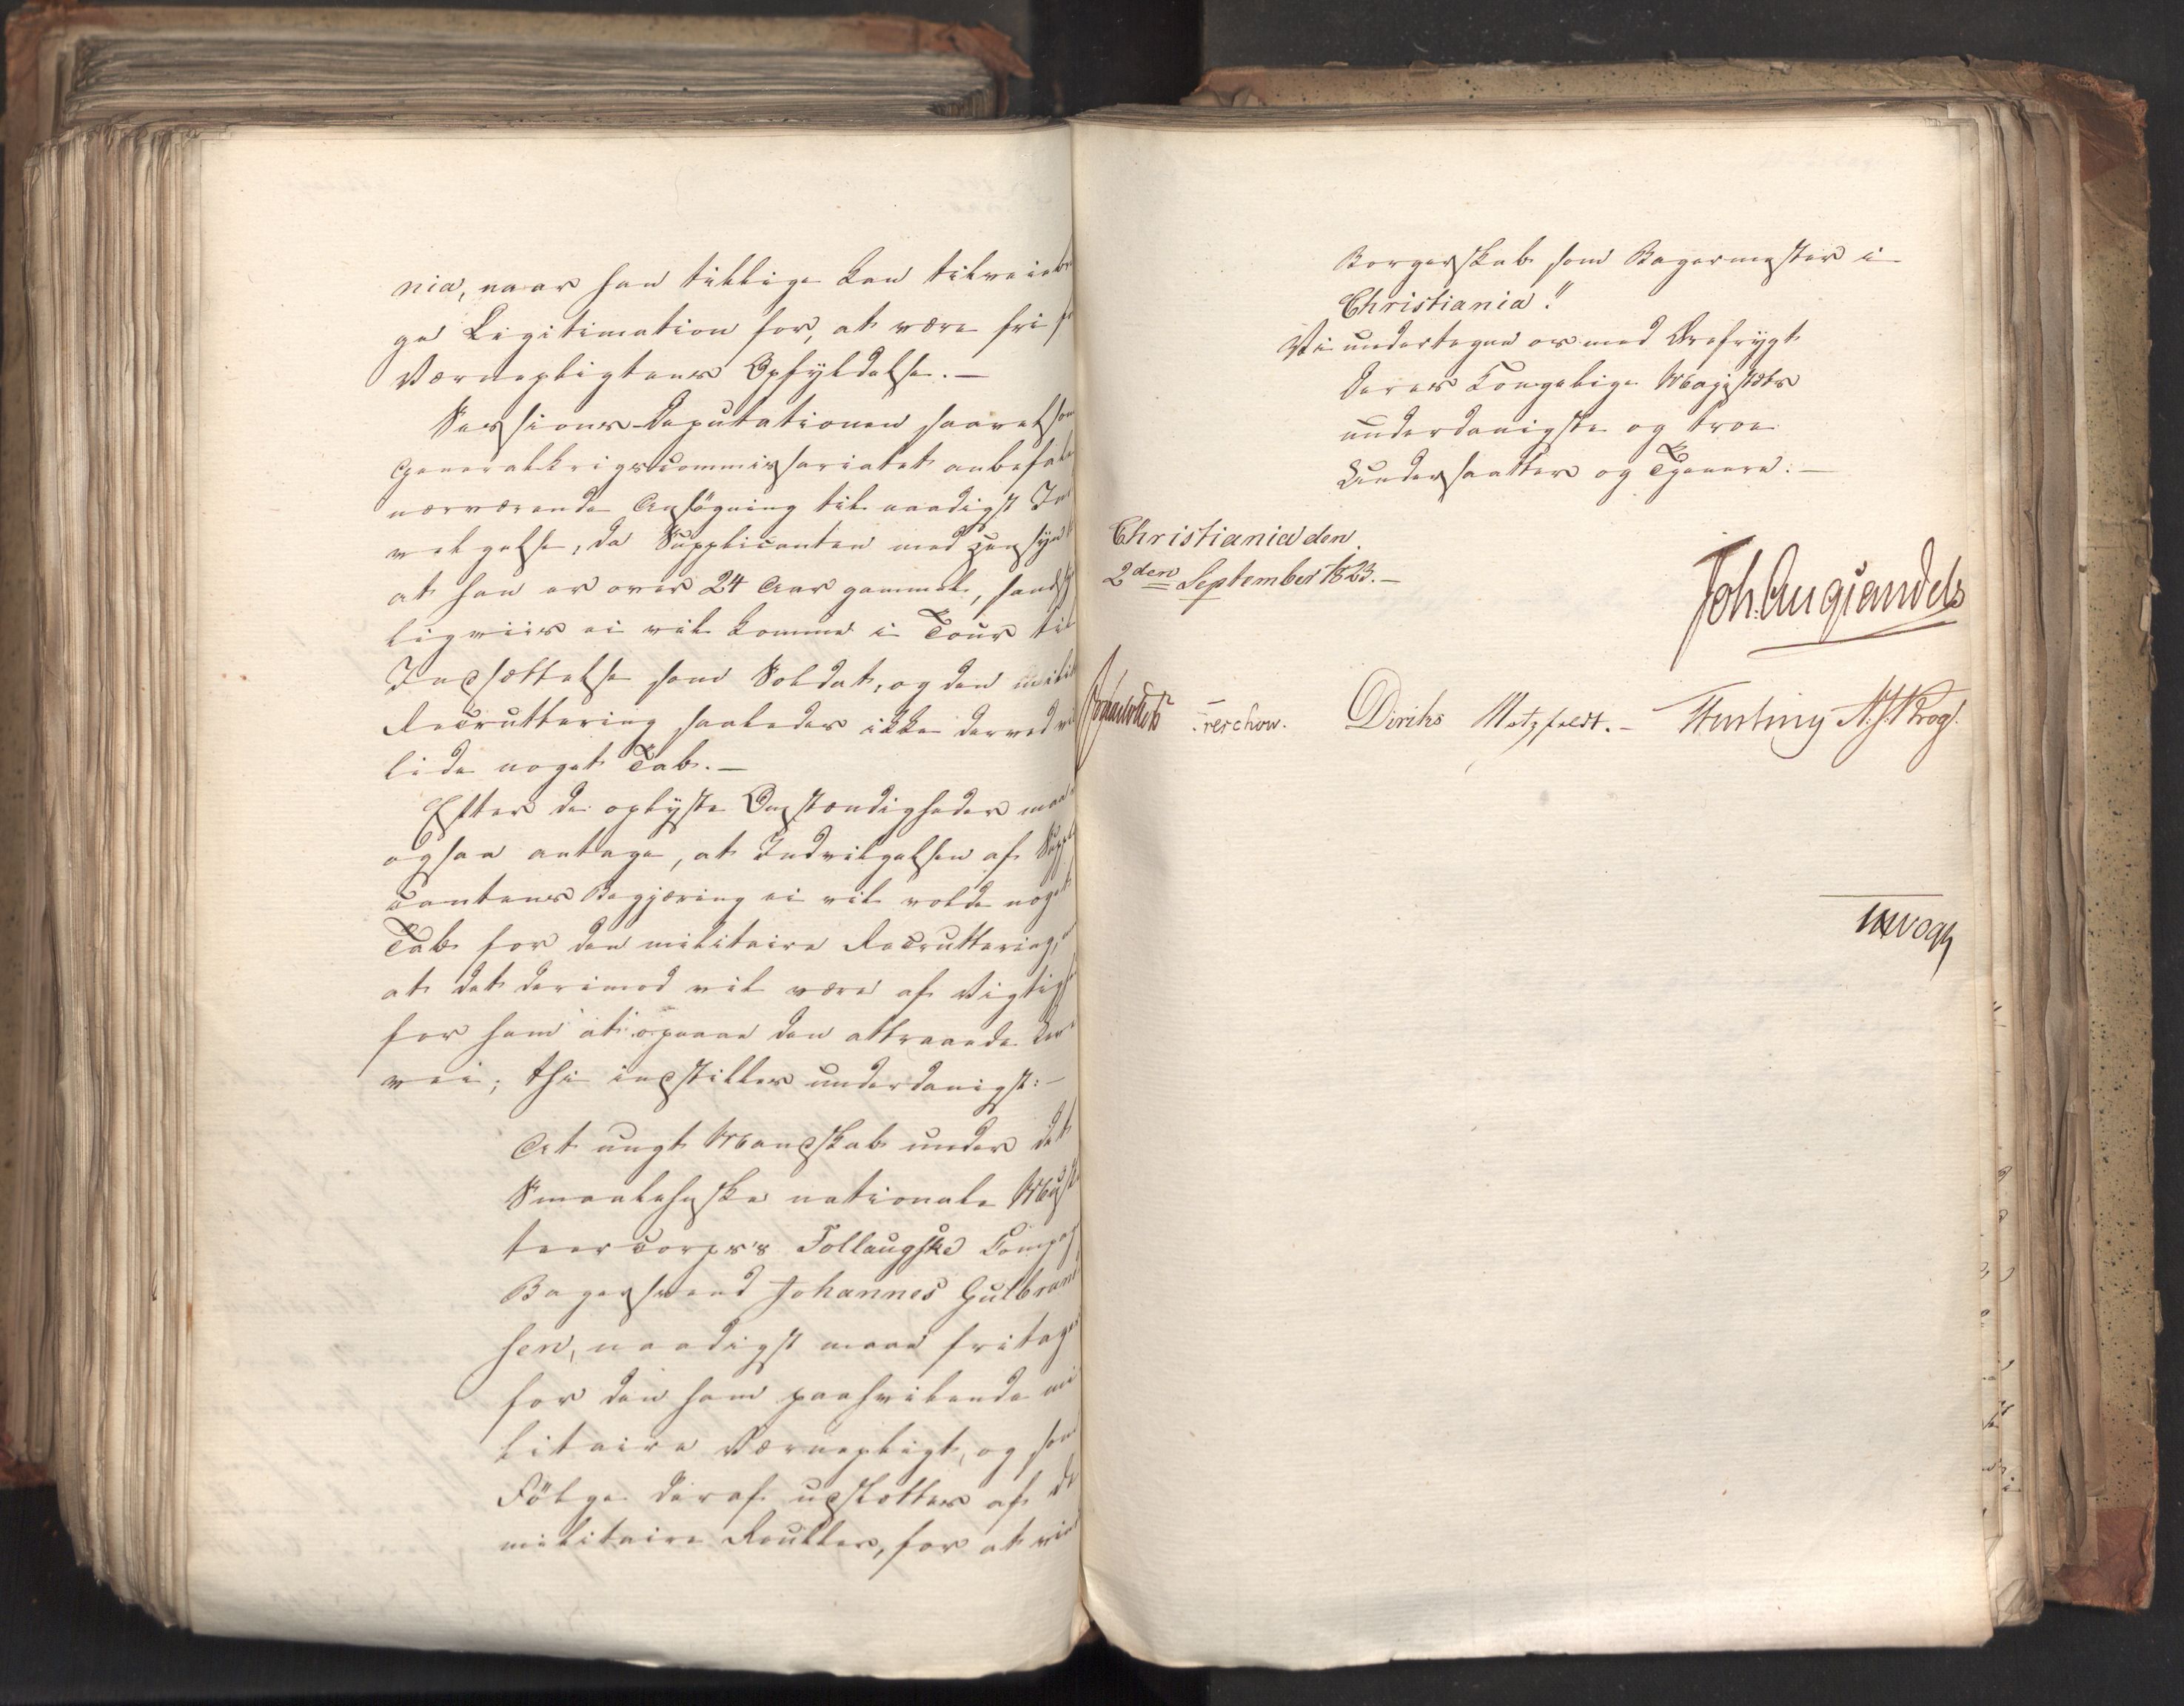 nia, naar han tillige kan tilveiebrin
ge Legitimation for, at være fri for
Værnepligtens Opfyldelse. —
Sessions-Deputationen saavelsom
Generalkrigscommissariatet anbefale
nærværende Ansøgning til naadigst Ind
vilgelse, da Supplicanten med Hensyn til
at han er over 24 Aar gammel, sandsyn
ligviis ei vil komme i Tour til
Indsættelse som Soldat, og den militaire
Recruttering saaledes ikke derved vil
lide noget Tab. —
Efter de oplyste Omstændigheder maae
ogsaa antage, at Indvilgelsen af Suppli
cantens Begjæring ei vil volde noget
Tab for den militaire Recruttering, men
at det derimod vil være af Vigtighed
for ham at opnaae den attraaede Ere
vei; thi indstilles underdanigst: —
At ungt Mandskab under det
Smaalehnske nationale Muske
teercorps's Follougske Compagnie
Bagersvend Johannes Gulbrand
sen, naadigst maae fritages
for den ham paahvilende mi
litaire Værnepligt, og som
Følge deraf udslettes af de
militaire Rouller, for at vinde
Borgerskab som Bagermester i
Christiania."
Vi undertegne os med Ærefrygt
Deres Kongelige Majestæts
underdanigste og troe
Undersaatter og Tjenere: —
Christiania den
2den September 1823. —
Joh. Aug. Sandels
Sommerhielm Treschow. Diriks Motzfeldt. — Fasting N. J. Krog.
Vogt